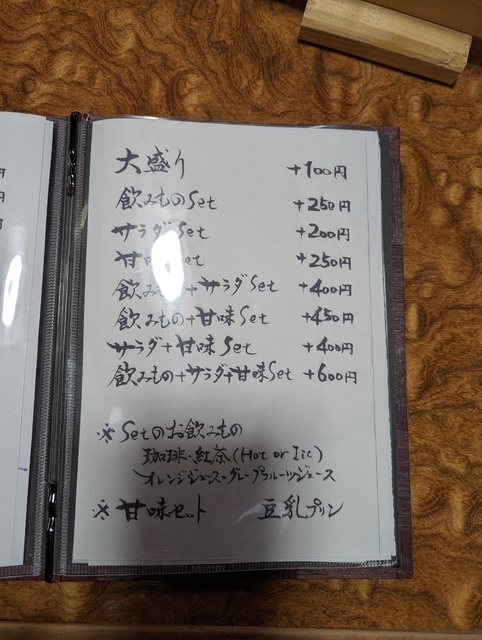 大盛り +100円
飲みものSet +250円
サラダSet +200円
甘味Set +250円
飲みもの+サラダSet +400円
飲みもの+甘味Set +450円
サラダ+甘味Set +400円
飲みもの+サラダ+甘味Set +600円
※Setのお飲みもの
珈琲・紅茶(Hot or Ice)
オレンジジュース・グレープフルーツジュース
※甘味セット 豆乳プリン